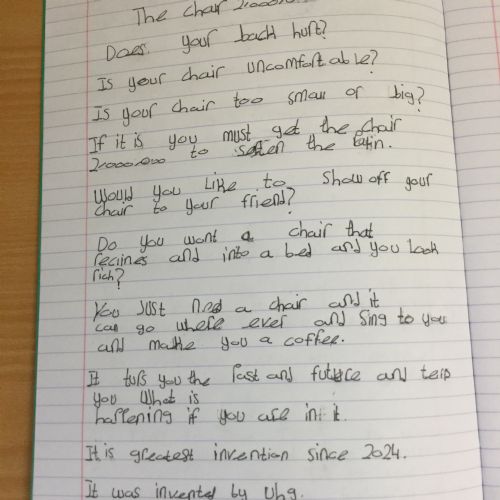 The chair 21000000
Does your back hurt?
Is your chair uncomfortable?
Is your chair too small or big?
If it is you must get the chair
21000.000 to soften the
Would you like to show off your
chair to your friend?
Do you want a chair that
reclines and into a bed and you look
rich?
You Just need a chair and it
can go where ever and sing to you
and make you a coffee.
It tells you the Past and future and tells
you What is
happening if you are in it.
It is greatest invention since 2024.
It was invented by